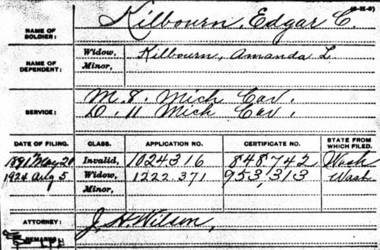 NAME OF SOLDIER: Kilbourn, Edgar C.
NAME OF DEPENDENT: Widow, Kilbourn, Amanda L.
Minor,
SERVICE: M. 8. Mich Cav.
D. 11 Mich Cav.
DATE OF FILING. CLASS. APPLICATION NO. CERTIFICATE NO. STATE FROM WHICH FILED.
1891 May 20 Invalid, 1024316 848742 Wash
1924 Aug 5 Widow, 1222371 953,313 Wash
Minor,
ATTORNEY: J. H. Wilson,
REMARKS: